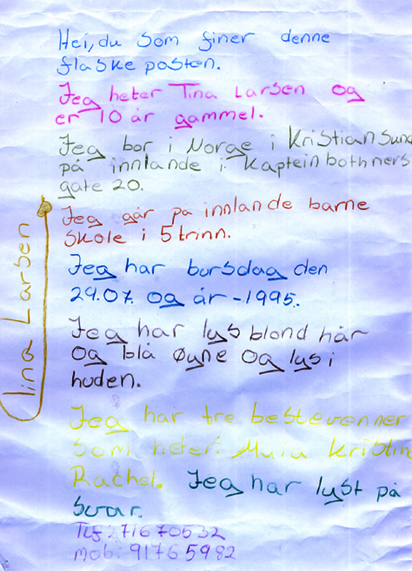 Hei, du som finer denne
flaske posten.
Jeg heter Tina Larsen og
er 10 år gammel.
Jeg bor i Norge i Kristiansund
på innlande i Kaptein bothners
gate 20.
Jeg går pa innlande barne
skole i 5 trinn.
Jeg har bursdag den
29.07. og år -1995.
Jeg har lys blond hår
og blå øyne og lys i
huden.
Jeg har tre bestevenner
som heter: Kristin
Rachel. Jeg har lyst på
svar.
Tlf: 71670532
mob: 91765982
Tina Larsen